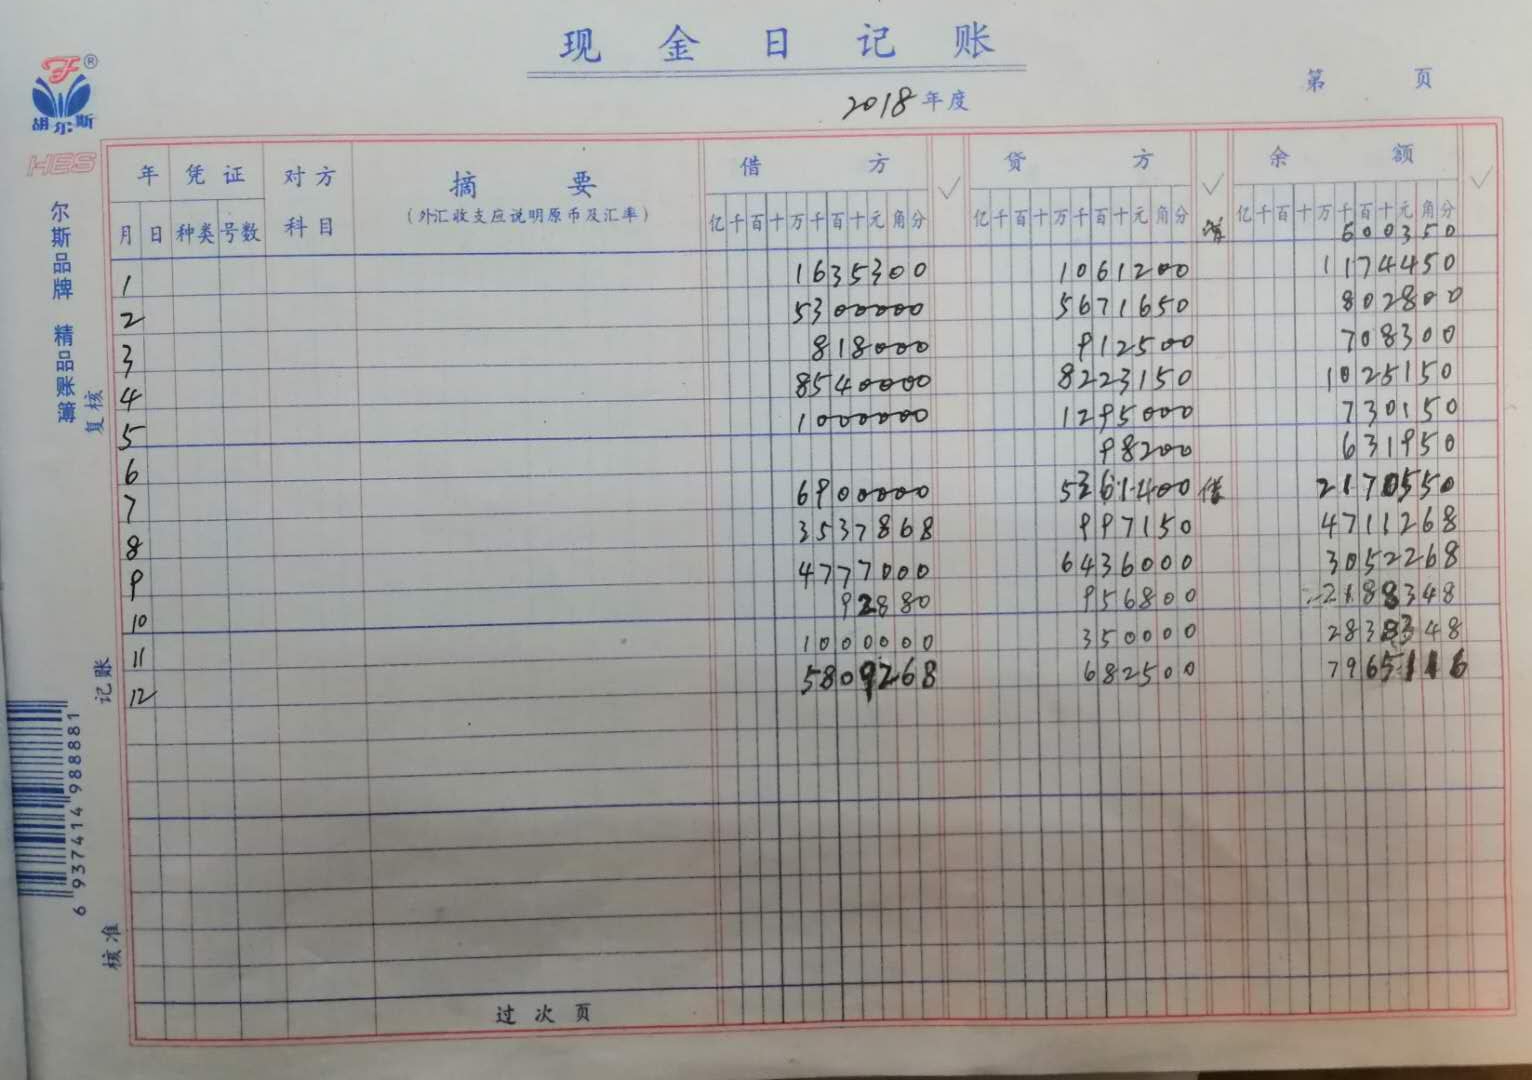 现金日记账
2018年度
第 页
胡尔斯
HES
尔斯品牌 精品账簿
复核
记账
核准
6 937414 988881
年 凭证 对方科目 摘要 借方 ✓ 贷方 ✓ 余额 ✓
(外汇收支应说明原币及汇率)
月 日 种类 号数 亿千百十万千百十元角分 亿千百十万千百十元角分 亿千百十万千百十元角分
600350
1 1635300 1061200 1174450
2 5300000 5671650 802800
3 818000 912500 708300
4 8540000 8223150 1025150
5 1000000 1295000 730150
6 98200 631950
7 6900000 5361400 借 2170550
8 3537868 997150 4711268
9 4777000 6436000 3052268
10 92880 956800 2188348
11 1000000 350000 2838348
12 5809268 682500 7965116
过次页